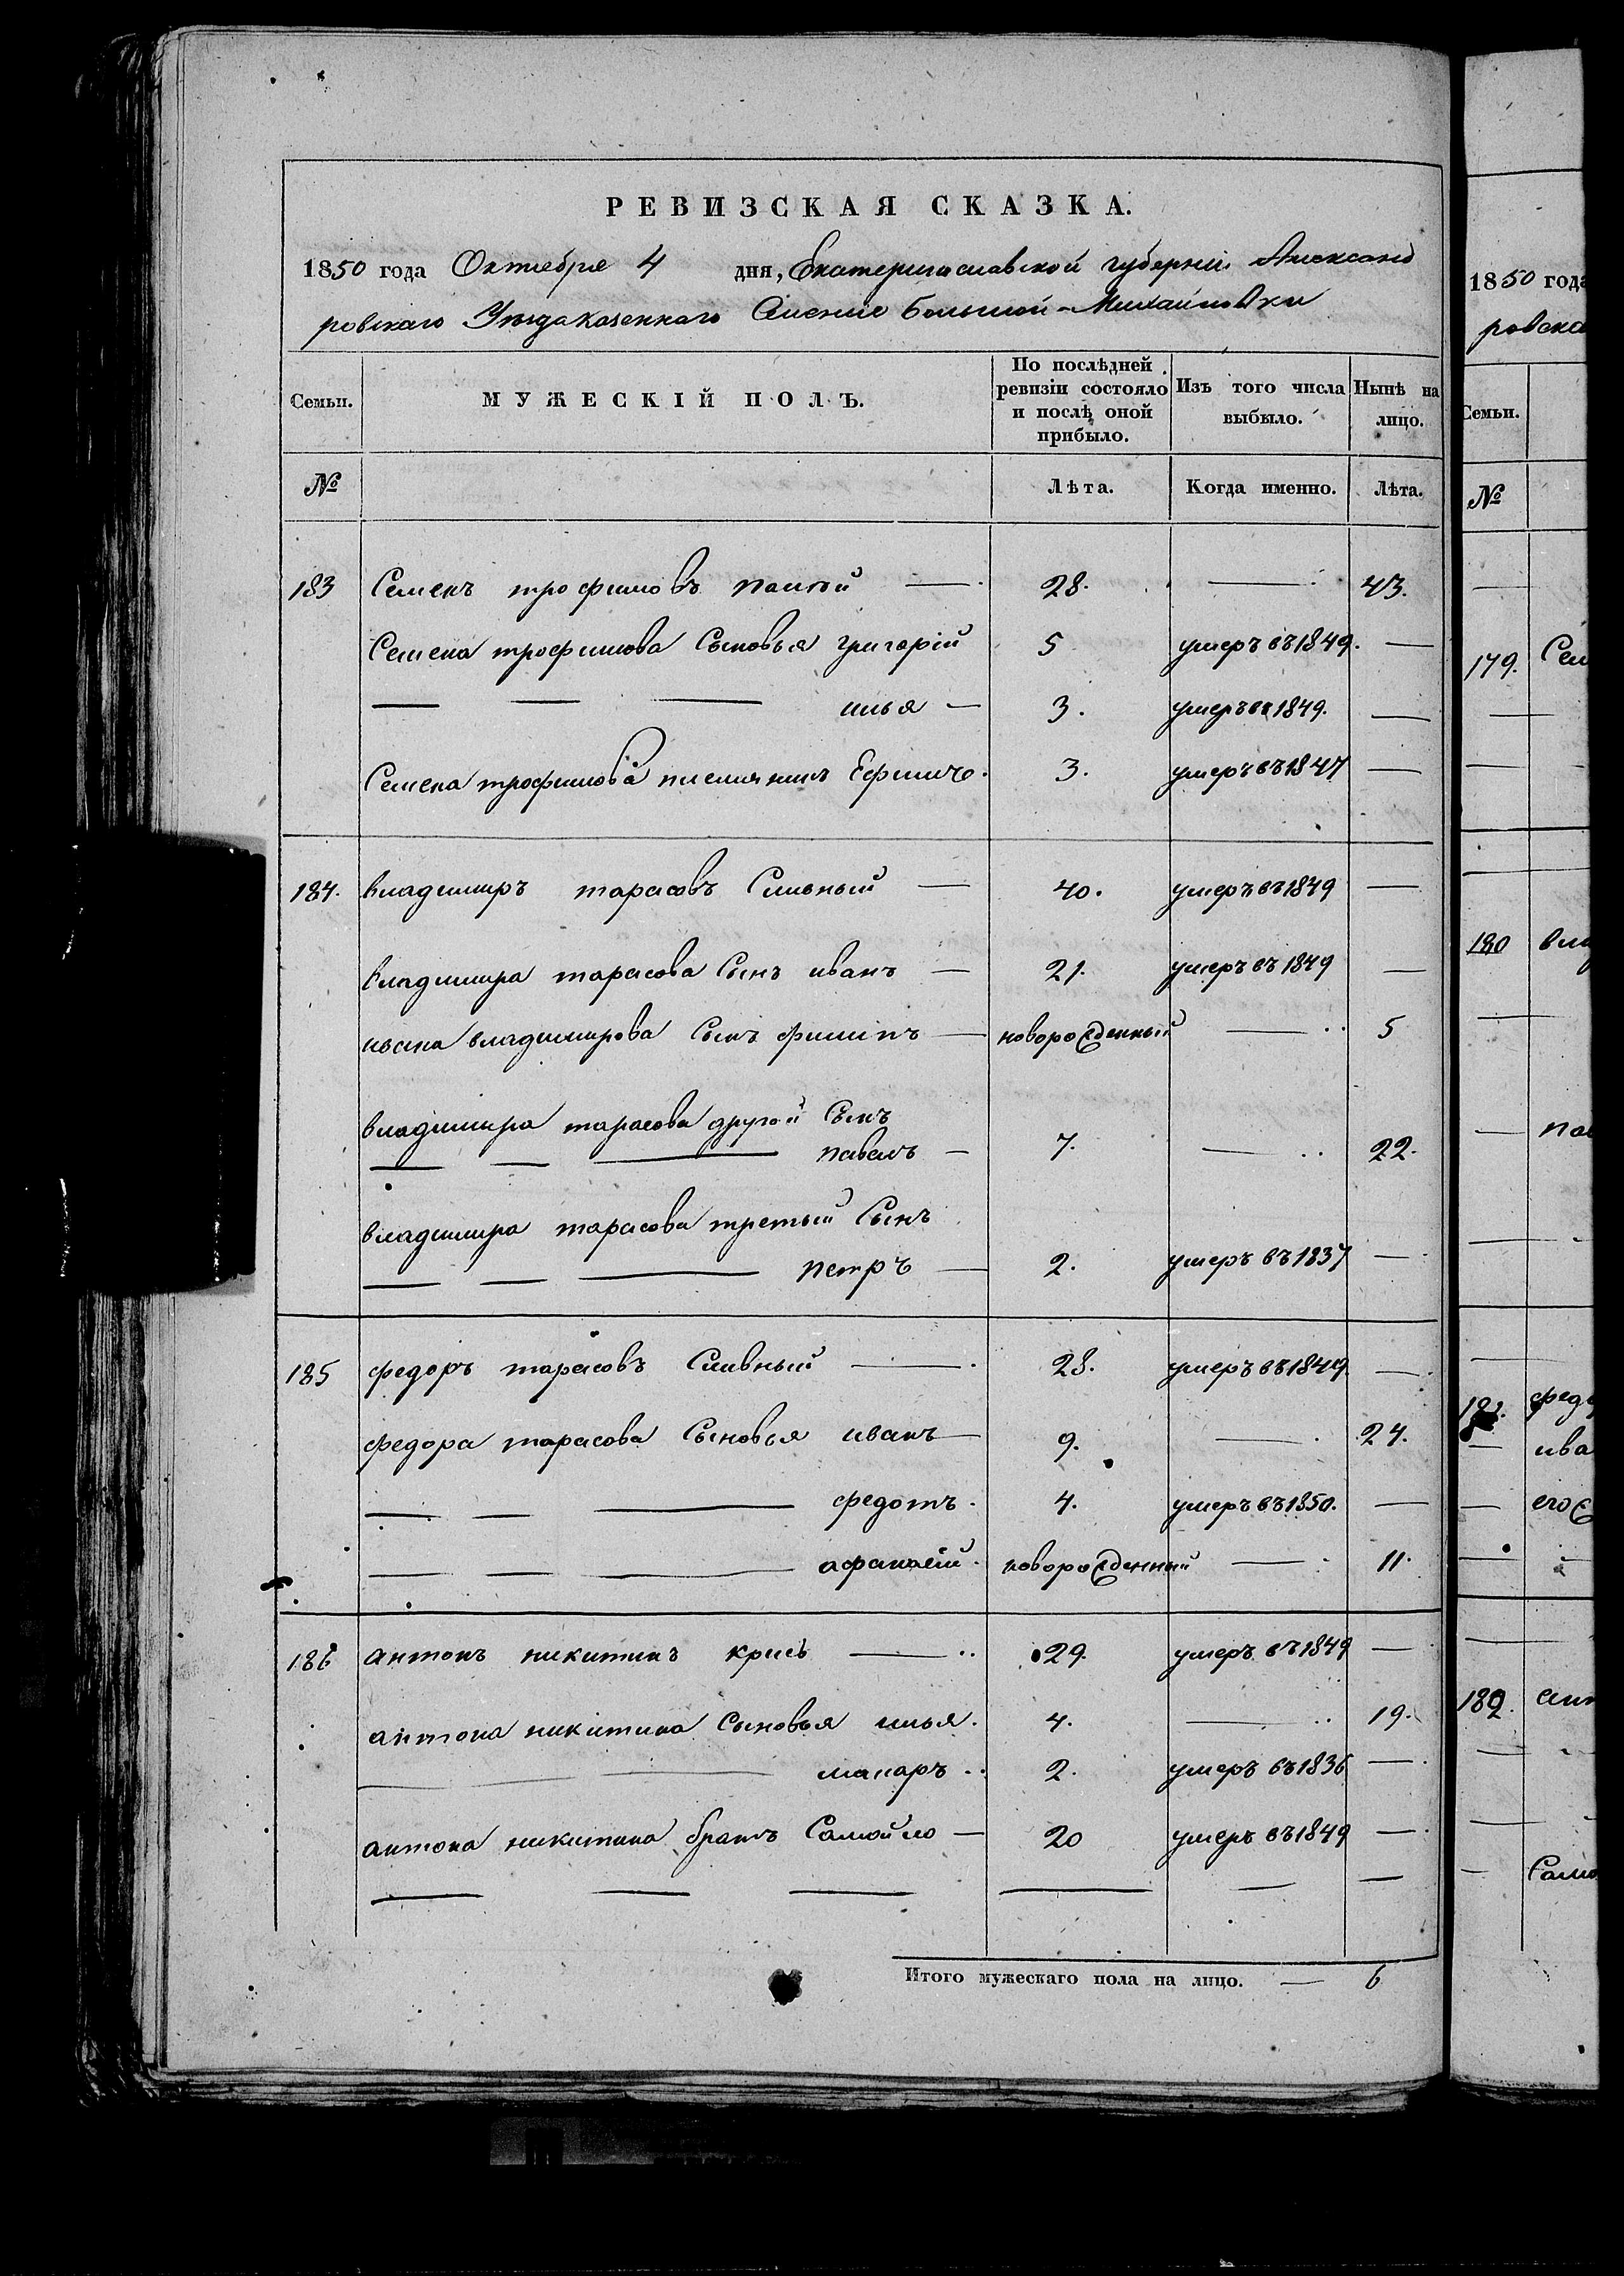 РЕВИЗСКАЯ СКАЗКА.
1850 года Октября 4 дня, Екатеринославской губерніи Александ
ровскаго Уезда казеннаго Селенія Большой-Михайловки
Семьи. МУЖЕСКІЙ ПОЛЪ. По послѣдней ревизіи состояло и послѣ оной прибыло. Изъ того числа выбыло. Нынѣ на лицо.
№ Лѣта. Когда именно. Лѣта.
183 Семенъ трофимовъ 28. — 43.
Семена трофимова Сыновья григорій 5 умеръ въ 1849. —
— — — илья — 3. умеръ въ 1849. —
Семена трофимова племянникъ Ефимъ 3. умеръ въ 1847 —
184. владимиръ тарасовъ Сливный — 40. умеръ въ 1849 —
владимира тарасова Сынъ иванъ — 21. умеръ въ 1849 —
ивана владимирова Сынъ филипъ — новорожденный — 5
владимира тарасова другой Сынъ
— — — павелъ — 7. — 22.
владимира тарасова третый Сынъ
— — — петръ — 2. умеръ въ 1837 —
185 федоръ тарасовъ Сливный — 28. умеръ въ 1849. —
федора тарасова Сыновья иванъ — 9. — 24.
— — — федотъ. 4. умеръ въ 1850. —
— — — афанасій. новорожденный — 11.
186 антонъ никитинъ — 29. умеръ въ 1849 —
антона никитина Сыновья илья. 4. — 19.
— — макаръ 2. умеръ въ 1836 —
антона никитина братъ Самойло — 20 умеръ въ 1849 —
— — — — — —
Итого мужескаго пола на лицо. — 6
1850 года
ровска
Семьи.
№
179. Сем
180 вла
пав
федо
ива
его
182. ант
Само